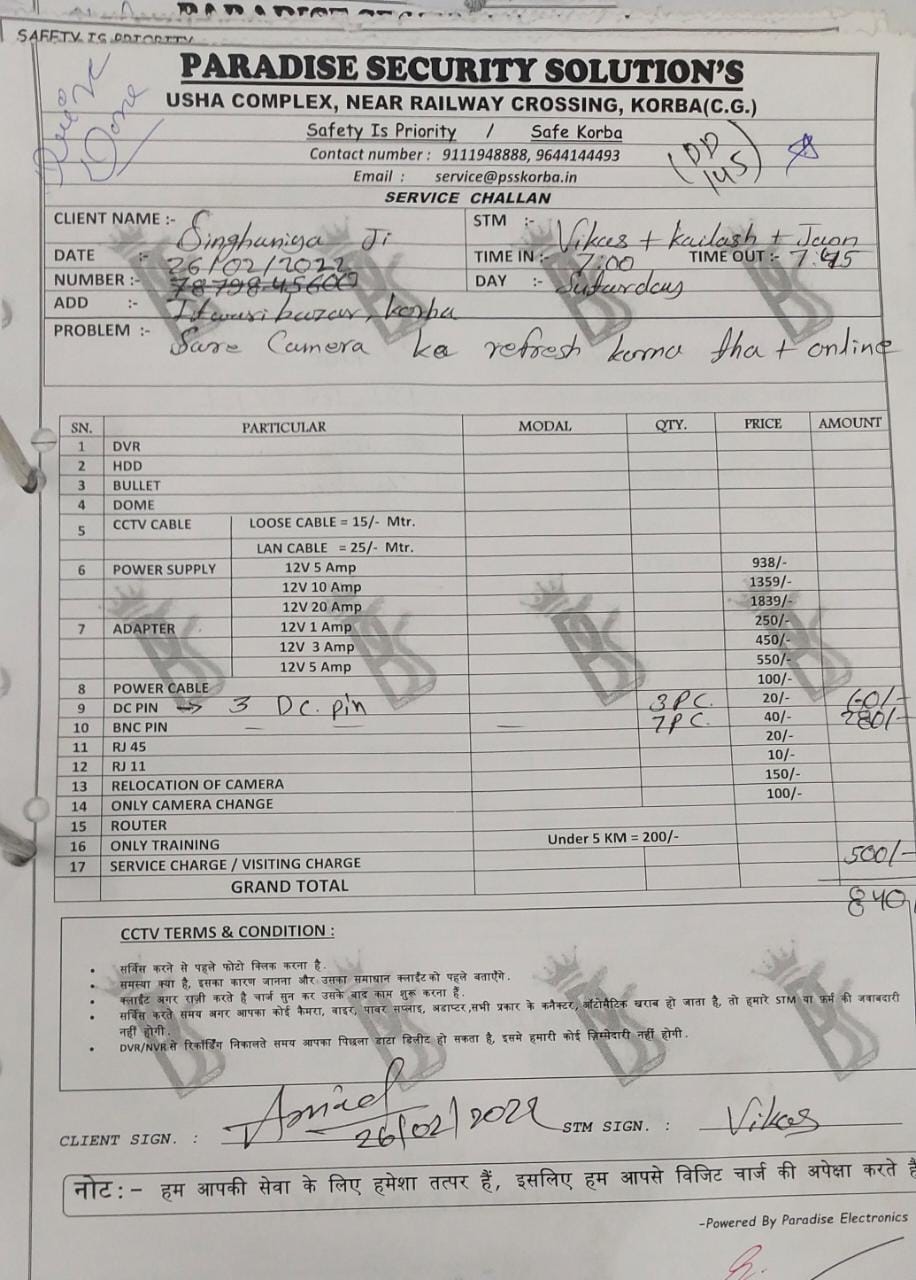 SAFETY IS PRIORITY
PARADISE SECURITY SOLUTION'S
USHA COMPLEX, NEAR RAILWAY CROSSING, KORBA(C.G.)
Safety Is Priority / Safe Korba
Contact number : 9111948888, 9644144493
Email : service@psskorba.in
Done
(DD
145)
SERVICE CHALLAN
CLIENT NAME :- Singhaniya Ji STM :- Vikas + Kailash +
DATE :- 26/02/2022 TIME IN :- 7:00 TIME OUT :- 7:45
NUMBER :- 78798-45600 DAY :- Saturday
ADD :- Itwari bazar, korba
PROBLEM :- Sare Camera ka refresh karna tha + online
SN. PARTICULAR MODAL QTY. PRICE AMOUNT
1 DVR
2 HDD
3 BULLET
4 DOME
5 CCTV CABLE LOOSE CABLE = 15/- Mtr.
LAN CABLE = 25/- Mtr.
6 POWER SUPPLY 12V 5 Amp 938/-
12V 10 Amp 1359/-
12V 20 Amp 1839/-
7 ADAPTER 12V 1 Amp 250/-
12V 3 Amp 450/-
12V 5 Amp 550/-
8 POWER CABLE 100/-
9 DC PIN → 3 Dc. pin 3 PC. 20/- 60/-
10 BNC PIN — — — 7 PC. 40/- 280/-
11 RJ 45 20/-
12 RJ 11 10/-
13 RELOCATION OF CAMERA 150/-
14 ONLY CAMERA CHANGE 100/-
15 ROUTER
16 ONLY TRAINING Under 5 KM = 200/-
17 SERVICE CHARGE / VISITING CHARGE 500/-
GRAND TOTAL 840
CCTV TERMS & CONDITION :
• सर्विस करने से पहले फोटो क्लिक करना है.
• समस्या क्या है, इसका कारण जानना और उसका समाधान क्लाईंट को पहले बताएँगे.
• क्लाईंट अगर राज़ी करते है चार्ज सुन कर उसके बाद काम शुरू करना हैं.
• सर्विस करते समय अगर आपका कोई कैमरा, वाइर, पावर सप्लाइ, अडाप्टर,सभी प्रकार के कनैक्टर, ऑटोमैटिक खराब हो जाता है, तो हमारे STM या फ़र्म की जवाबदारी
नहीं होगी.
• DVR/NVR से रिकॉर्डिंग निकालते समय आपका पिछला डाटा डिलीट हो सकता है, इसमे हमारी कोई ज़िम्मेदारी नहीं होगी.
CLIENT SIGN. : 26/02/2022 STM SIGN. : Vikas
नोट:- हम आपकी सेवा के लिए हमेशा तत्पर हैं, इसलिए हम आपसे विजिट चार्ज की अपेक्षा करते है
-Powered By Paradise Electronics